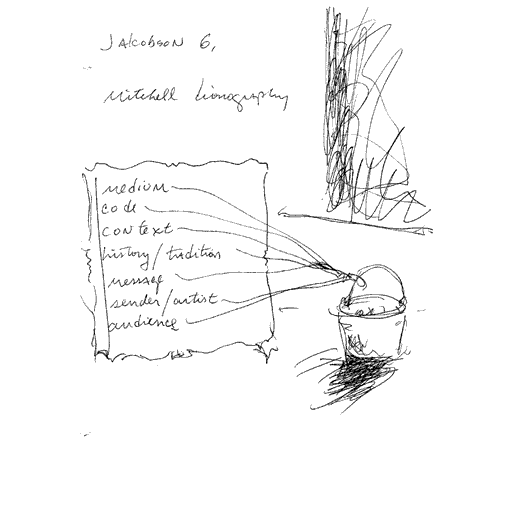 Jakobson 6,
Mitchell Iconography
medium
code
context
history/tradition
message
sender/artist
audience